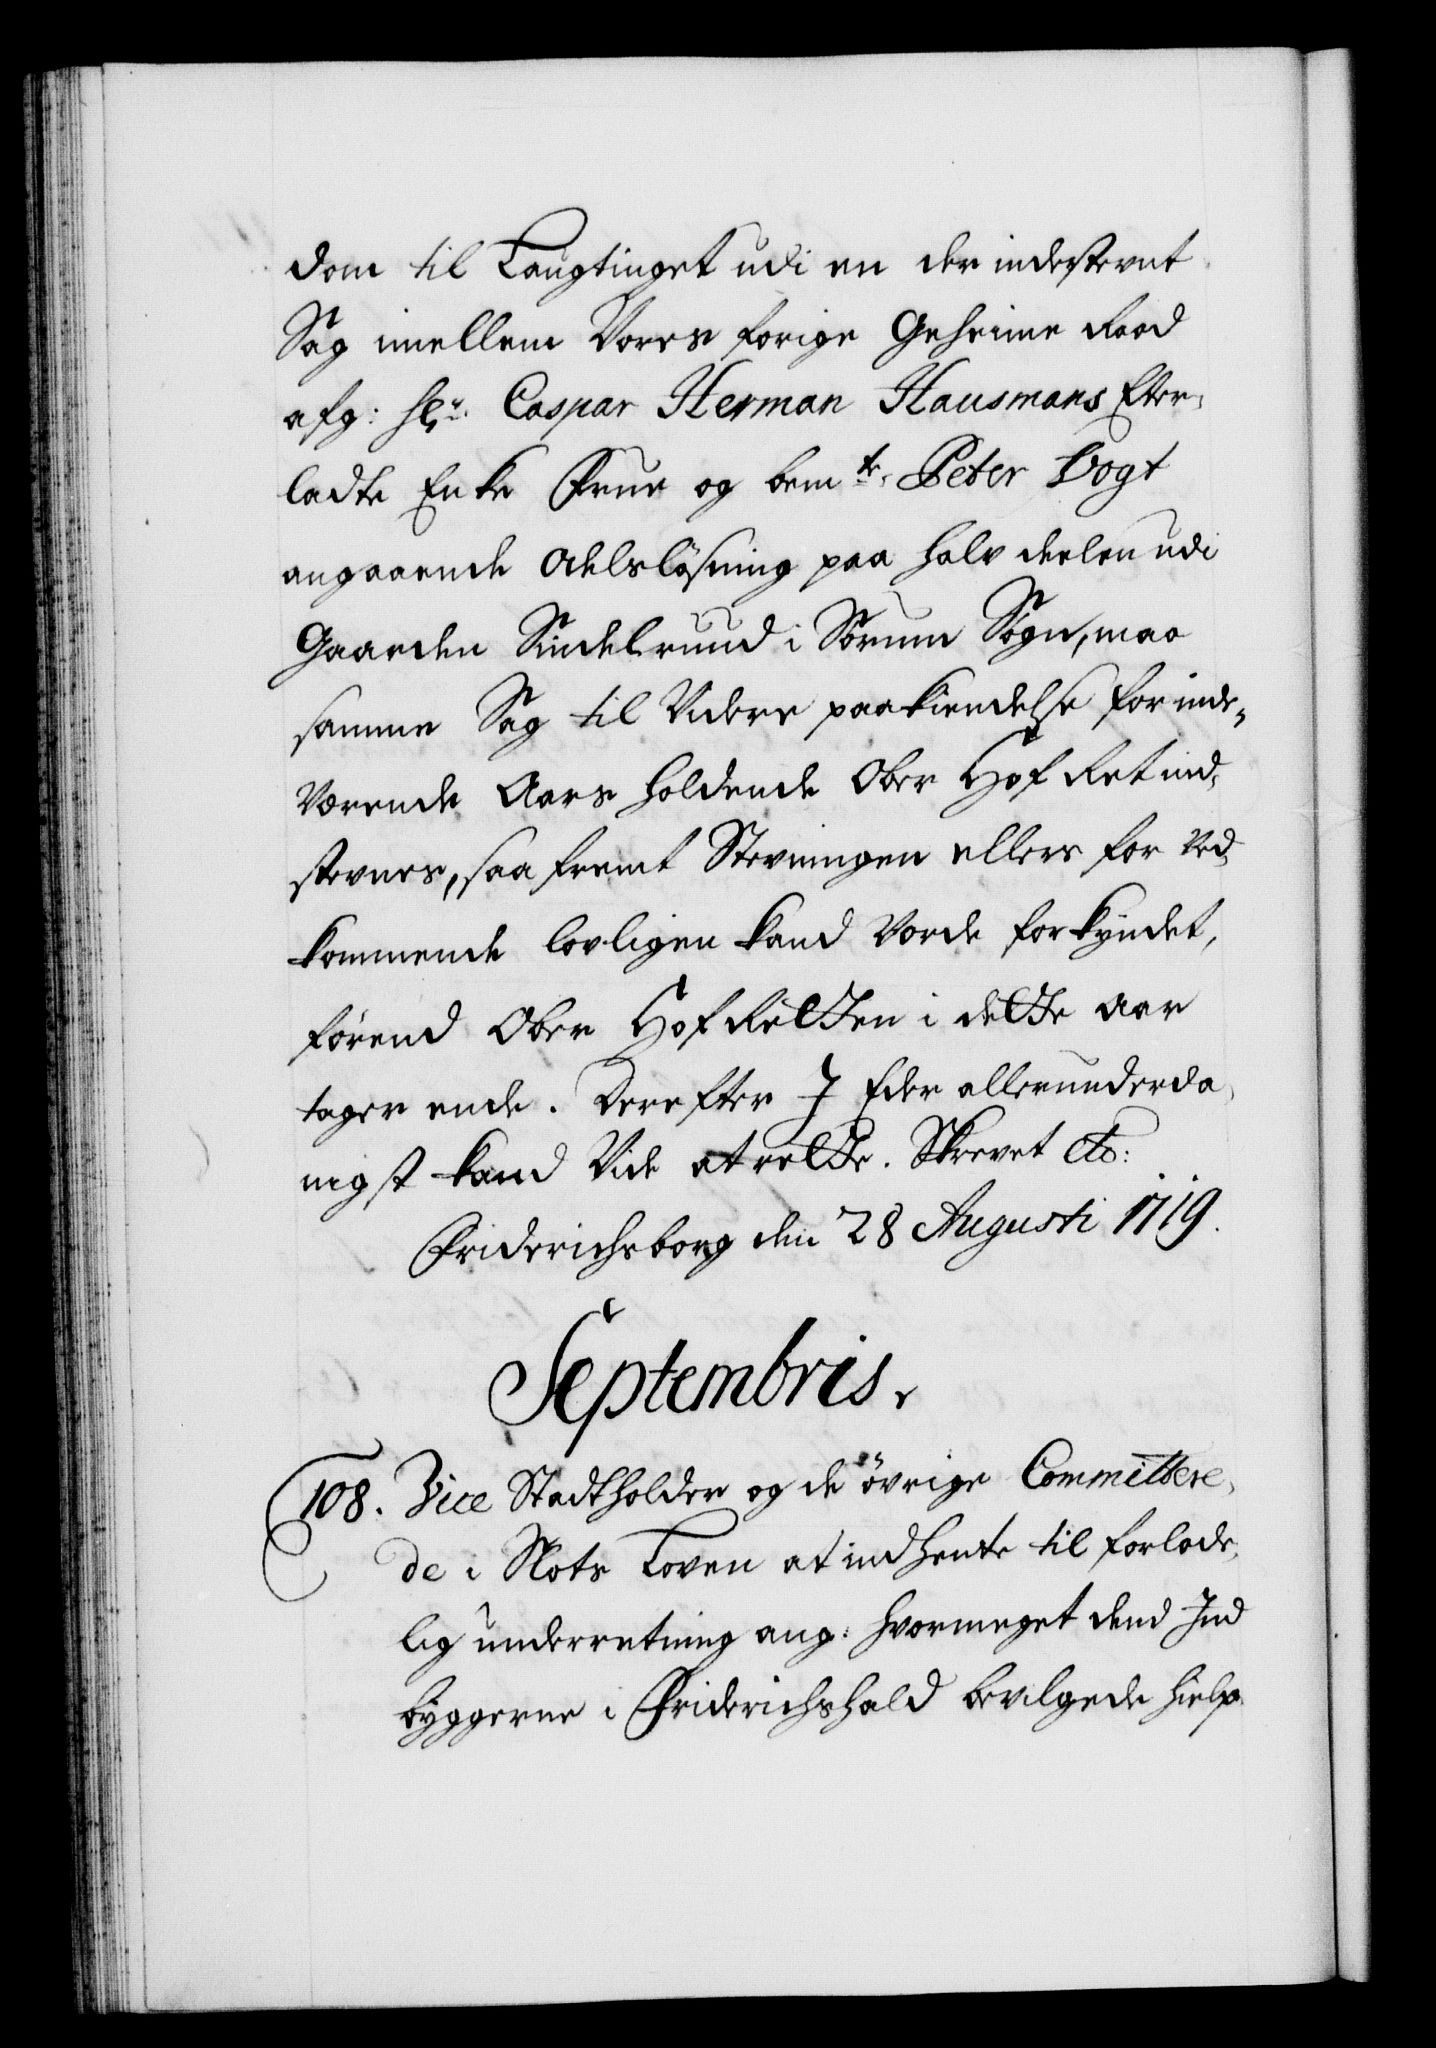 dom til Laugtinget udi en der indestevnt
Sag imellem Vores forige Geheime Raad
afg: Hr: Caspar Herman Hausmans Efter-
ladte Enke Frue og bemte Peter Vogt
angaaende Odelsløsning paa halv deelen udi
Gaarden Sindelruud i Sørum Sogn, maa
samme Sag til Videre paakiendelse for inde-
Værende Aars holdende Ober Hof Ret ind-
stevnes, saa fremt Stevningen ellers for Ved-
kommende lovligen kand Vorde forkyndet,
førend Ober HofRetten i dette Aar
tager ende. Derefter I Eder allerunderda-
nigst kand Vide at rette. Skrevet etc:
Friderichsborg den 28 Augusti 1719.
Septembris.
108. Vice Stadtholder og de øvrige Committere-
de i Slots Loven at indhente til forlade-
lig underretning ang: hvormeget dend Ind
byggerne i Friderichshald bevilgede hielp